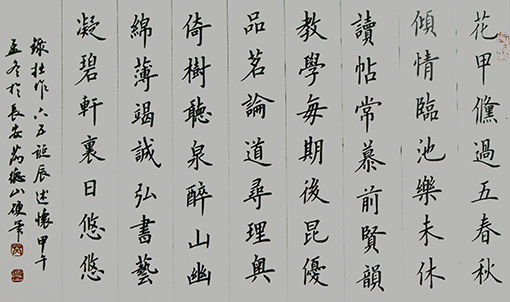 花甲儵過五春秋
傾情臨池樂未休
讀帖常慕前賢韻
教學每期後昆優
品茗論道尋理奧
倚樹聽泉醉山幽
綿薄竭誠弘書藝
凝碧軒裏日悠悠
錄拙作六五誕辰述懷甲午
孟冬於長安萬山硬筆